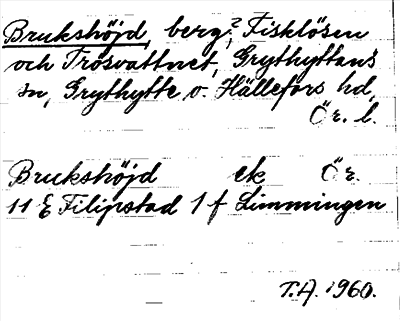 Brukshöjd, berg, ? Fisklösen
och Trösvattnet, Grythyttans
sn, Grythytte o. Hällefors hd,
Ör. l.
Brukshöjd ek Ör.
11 E Filipstad 1 f Limmingen
T.A. 1960.